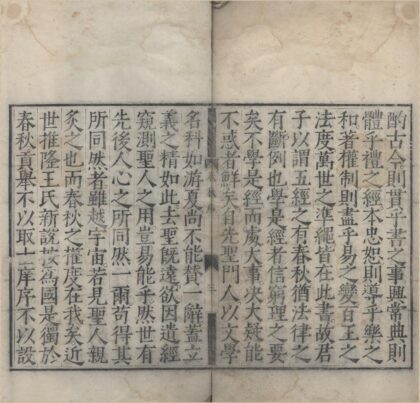 酌古今則貫乎書之事興常典則
體乎禮之經本忠恕則導乎樂之
和著權制則盡乎易之變百王之
法度萬世之準繩皆在此書故君
子以謂五經之有春秋猶法律之
有斷例也學是經者信窮理之要
矣不學是經而處大事決大疑能
不惑者鮮矣自先聖門人以文學
名科如游夏尚不能贊一辭蓋立
義之精如此去聖旣遠欲因遺經
窺測聖人之用豈易能乎然世有
先後人心之所同然一爾苟得其
所同然者雖越宇宙若見聖人親
炙之也而春秋之權度在我矣近
世推隆王氏新說按爲國是獨於
春秋貢舉不以取士庠序不以設